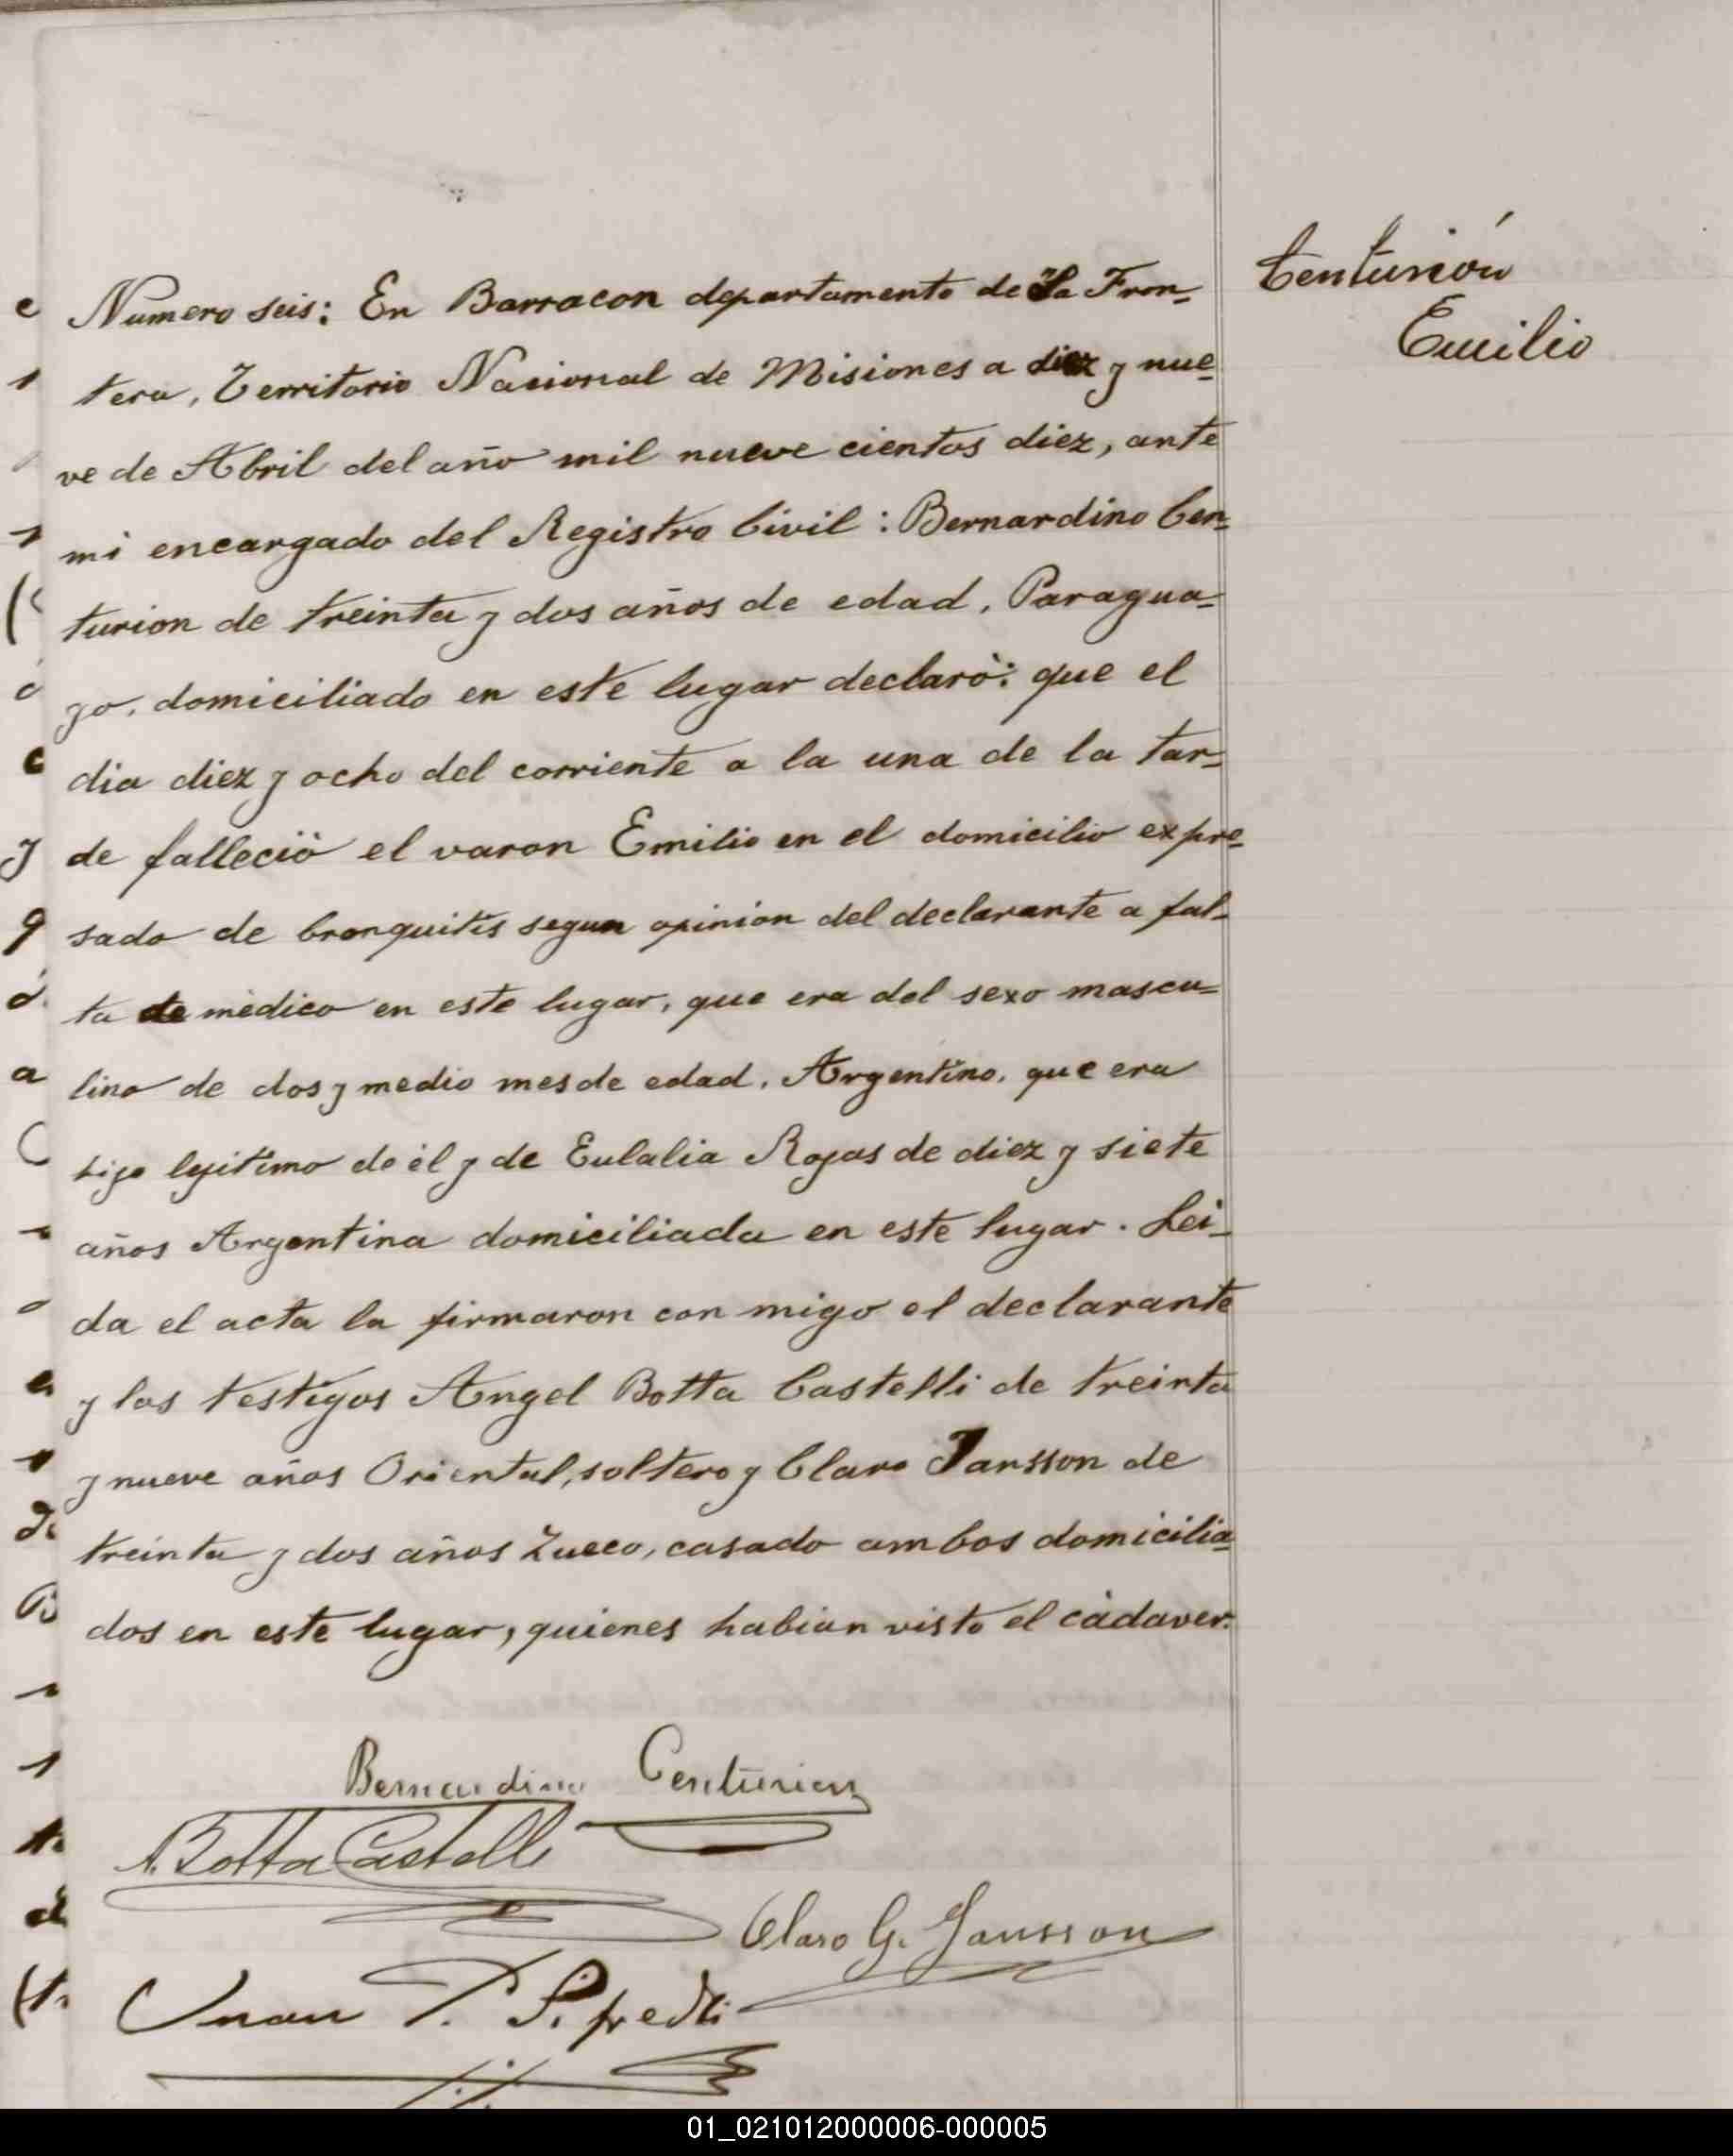 Centurión
Emilio
Numero seis: En Barracon departamento de "La Fron-
tera, Territorio Nacional de Misiones a diez y nue-
ve de Abril del año mil nueve cientos diez, ante
mi encargado del Registro Civil: Bernardino Cen-
turion de treinta y dos años de edad, Paragua-
yo, domiciliado en este lugar declarò: que el
dia diez y ocho del corriente a la una de la tar-
de falleciò el varon Emilio en el domicilio expre-
sado de bronquitis segun opinion del declarante a fal-
ta de mèdico en este lugar, que era del sexo mascu-
lino de dos y medio mes de edad, Argentino, que era
hijo legitimo de èl y de Eulalia Rojas de diez y siete
años Argentina domiciliada en este lugar. Lei-
da el acta la firmaron con migo el declarante
y los testigos Angel Botta Castelli de treinta
y nueve años Oriental, soltero y Claro Jansson de
treinta y dos años Zueco, casado ambos domicilia-
dos en este lugar, quienes habian visto el càdaver.
Bernardino Centurion
A. Botta Castelli
Claro G. Jansson
Juan
01_021012000006-000005